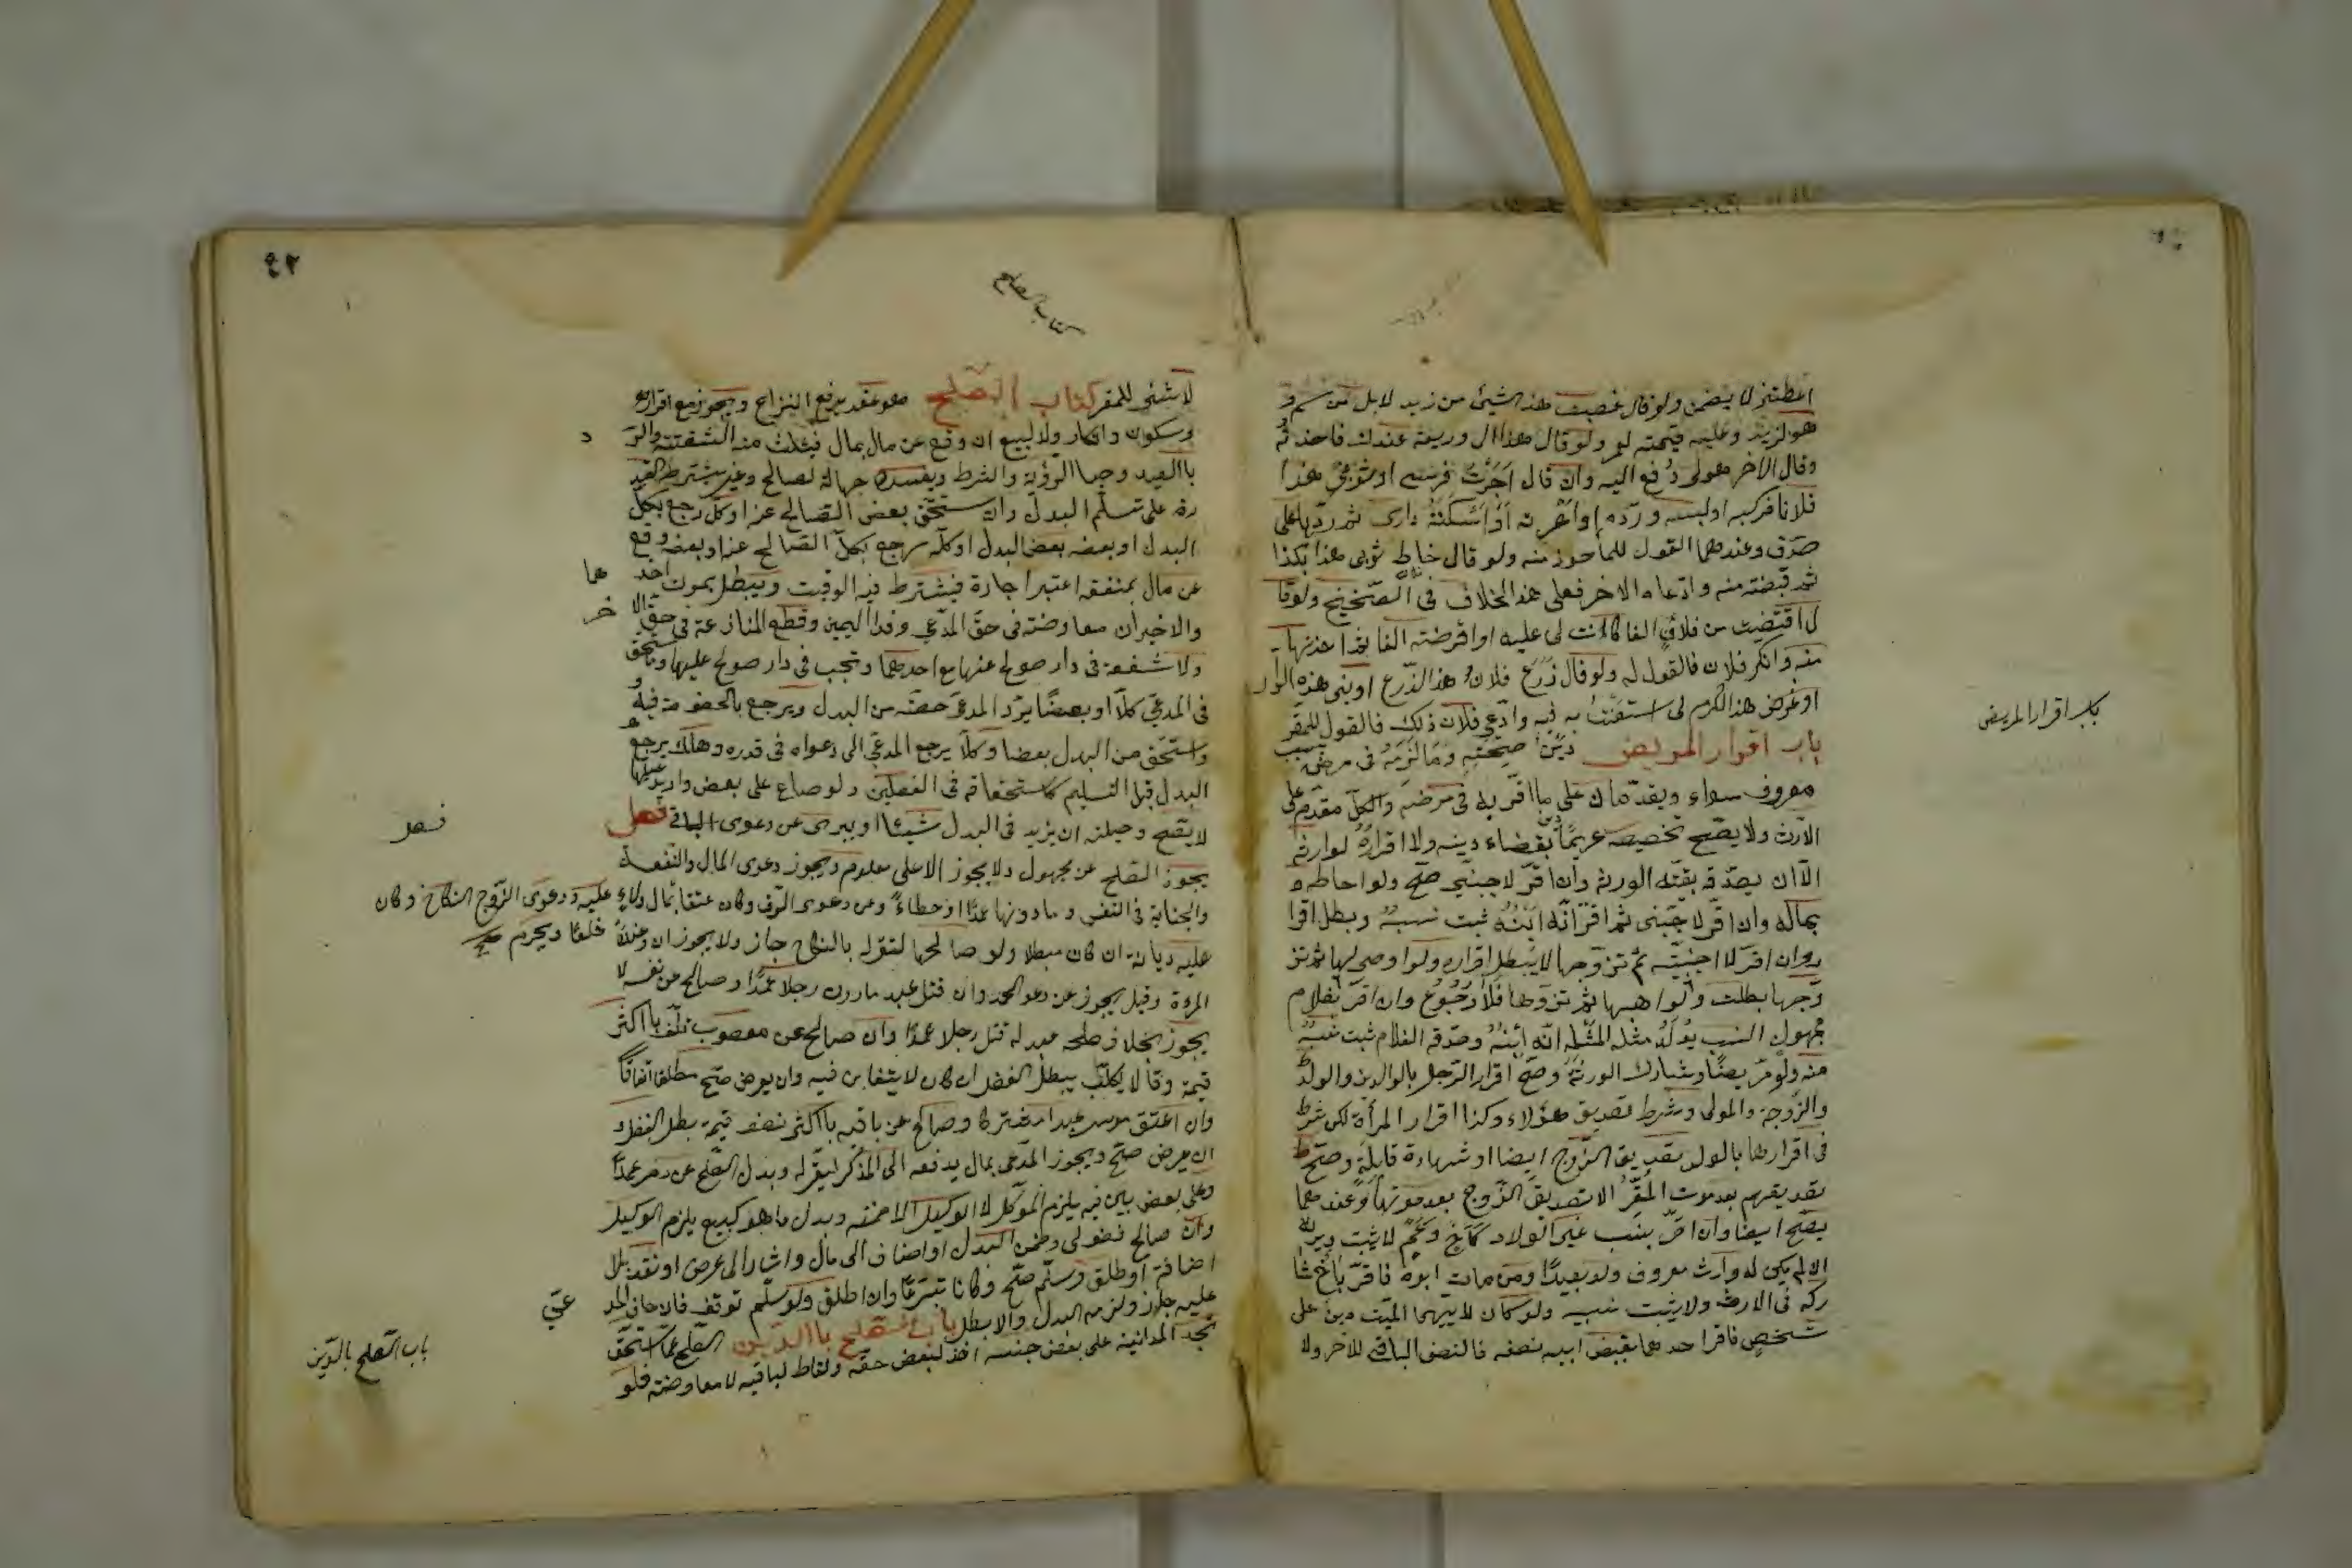 اعطتنيه لا يضمن ولو قال غصبت هذا الشئ من زيد لا بل من
هو لزيد وعليه قيمته ولو قال هذا لى وديعة عندك فاخذته
وقال الاخر هو لى دفع اليه وان قال اجرت فرسى او ثوبى هذا
فلانا فركبه او لبسه ورده او اعرته او اسكنته دارى ثم ردها على
صدق وعندهما القول للمأخوذ منه ولو قال خاط ثوبى هذا بكذا
ثم قبضته منه وادعاه الاخر فعلى هذا الخلاف فى الصحيح ولو قا
ل اقتضيت من فلان الفا كانت لى عليه او اقرضته الفا ثم اخذتها
منه وانكر فلان فالقول له ولو قال زرع فلان هذا الزرع او بنى هذه الدار
او غرض هذا الكرم لى استعنت به فيه وادعى فلان ذلك فالقول للمقر
باب اقرار المريض دين صحته وما لزمه فى مرضه بسبب
معروف سواء ويقدمان على ما اقر به فى مرضه والكل مقدم على
الارث ولا يصح تخصيصه غريمًا بقضاء دينه ولا اقراره لوارثه
الا ان يصدقه بقية الورثة وان اقر لاجنبى صح ولو احاط
بماله وان اقر لاجنبى ثم اقر انه ابنه ثبت نسبه وبطل اقرا
ره وان اقر لاجنبية ثم تزوجها لا يبطل اقراره ولو اوصى لها ثم تز
وجها بطلت ولو وهبها ثم تزوجها فلا رجوع وان اقر بغلام
مجهول النسب يولد مثله لمثله انه ابنه وصدقه الغلام ثبت نسبه
منه ولو مريضًا وشارك الورثة وصح اقرار الرجل بالوالدين والولد
والزوجة والمولى وشرط تصديق هؤلاء وكذا اقرار المرأة لكن شرط
فى اقرارها بالولد تصديق الزوج ايضا او شهادة قابلة وصح
تصديقهم بعد موت المقر الا تصديق الزوج بعد موتها وعندهما
يصح ايضا وان اقر بنسب غير الولاد كاخ وعم لا يثبت ويرثه
ان لم يكن له وارث معروف ولو بعيدًا ومن مات ابوه فاقر باخ شا
ركه فى الارث ولا يثبت نسبه ولو كان لابيهما الميت دين على
شخص فاقر احدهما بقبض ابيه نصفه فالنصف الباقى للاخر ولا
باب اقرار المريض
٤٢
كتاب الصلح
لا شئ للمقر كتاب الصلح هو عقد يرفع النزاع ويجوز مع اقرار
وسكوت وانكار ان وقع عن مال بمال فيثبت فيه الشفعة والر د
بالعيب وخيار الرؤية والشرط ويفسده جهالة
على تسلم البدل وان استحق بعض المصالح عنه او كله رجع بكل
البدل او بعضه بعض البدل او كله رجع بكل المصالح عنه او بعضه وقع
عن مال بمنفعة اعتبر اجارة فيشترط فيه الوقت ويبطل بموت احد هما
والاخيران معاوضة فى حق المدعى وفداء اليمين وقطع المنازعة فى حق الا خر
ولا شفعة فى دار صولح عنها مع احدهما وتجب فى دار صولح عليها وما استحق
فى المدعى كلا او بعضًا يرد المدعى حصته من البدل ويرجع بالخصومة فيه
وما استحق من البدل بعضا او كلا يرجع المدعى الى دعواه فى قدره وهلاك
البدل قبل التسليم كاستحقاقه فى الفصلين ولو صالح على بعض دار يدعيها
لا يصح وحيلته ان يزيد فى البدل شيئا او يبرى عن دعوى الباقى فصل
فصل
يجوز الصلح عن مجهول ولا يجوز الا على معلوم ويجوز دعوى المال والمنفعة
والجناية فى النفس وما دونها عمدًا او خطاءً وعن دعوى الرق وكان عتقا بمال ولاء عليه ودعوى الزوج النكاح وكان
عليه ديانة ان كان مبطلا ولو صالحها لتقر له بالنكاح جاز ولا يجوز ان خلعًا ويحرم
المرءة وقيل يجوز عن دعوى الحد وان قتل عبد مأذون رجلا عمدًا وصالح عن نفسه لا
يجوز بخلاف صلحه عن عبد له قتل رجلا عمدًا وان صالح عن مغصوب تلف باكثر
قيمة وقالا يبطل الفضل ان كان لا يتغابن فيه وان بعرض صح مطلقا اتفاقًا
وان اعتق موسر عبدا مشتركا وصالح عن باقيه باكثر نصف قيمة بطل الفضل و
ان بعرض صح ويجوز المدعى بمال يدفعه الى المنكر ليقر له وبدل الصلح عن دم عمدًا
وعلى بعض دين فيه يلزم الموكل لا الوكيل الا ضمنه وبدل ما هو كبيع يلزم الوكيل
وان صالح فضولى وضمن البدل او اضاف الى مال واشار الى عرض او نقد بلا
اضافة او طلق وسلم صح وكان متبرعًا وان اطلق ولو سلم توقف فان اجاز المد عى
عليه جاز ولزمه البدل والا بطل باب الصلح باالدين الصلح عما استحق
باب الصلح بالدين
بعقد المداينة على بعض جنسه اخذ لبعض حقه واسقاط لباقيه لا معاوضة فلو